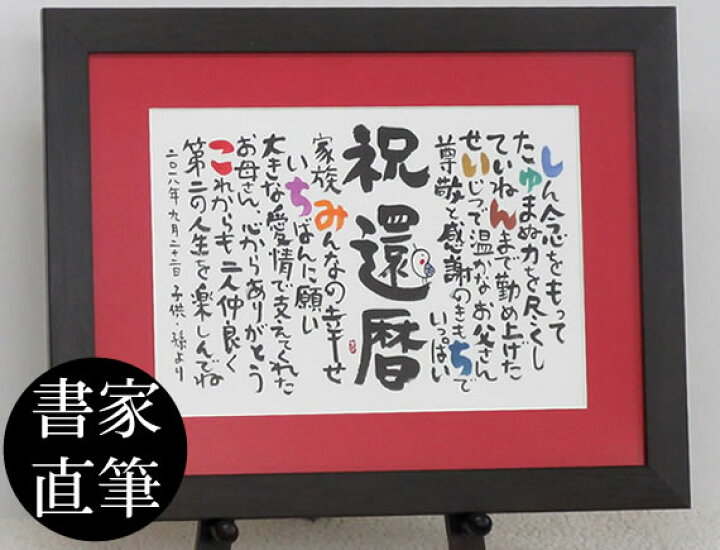 しん念をもって
たゆまぬ力を尽くし
ていねんまで勤め上げた
せいじつで温かなお父さん
尊敬と感謝のきもちで
いっぱい
祝還暦
家族みんなの幸せ
いちばんに願い
大きな愛情で支えてくれた
お母さん、心からありがとう
これからも二人仲良く
第二の人生を楽しんでね
二〇一八年九月二十二日 子供・孫より
書家
直筆